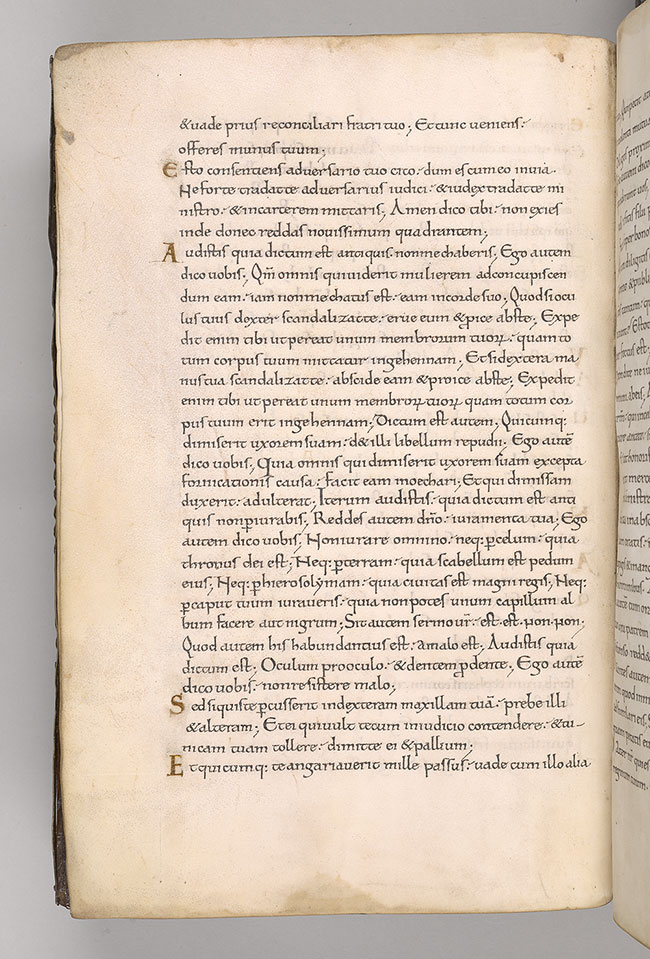 & uade prius reconciliari fratri tuo; Et tunc ueniens
offeres munus tuum;
Esto consentiens aduersario tuo cito. dum es cum eo in uia.
Ne forte tradat te aduersarius iudici. & iudex tradat te mi
nistro. & in carcerem mittaris; Amen dico tibi. non exies
inde donec reddas nouissimum quadrantem;
Audistis quia dictum est antiquis. non mechaberis; Ego autem
dico uobis; Qm̄ omnis qui uiderit mulierem ad concupiscen
dum eam. iam mechatus est. eam in corde suo; Quod si ocu
lus tuus dexter scandalizat te. erue eum & proice abs te; Expe
dit enim tibi ut pereat unum membrorum tuoꝝ. quam to
tum corpus tuum mittatur in gehennam; Et si dextera ma
nus tua scandalizat te. abscide eam & proice abs te; Expedit
enim tibi ut pereat unum membroꝝ tuoꝝ quam totum cor
pus tuum erit in gehennam; Dictum est autem; Quicumq:
dimiserit uxorem suam. d& illi libellum repudii; Ego autē
dico uobis; Quia omnis qui dimiserit uxorem suam excepta
fornicationis causa. facit eam moechari; Et qui dimissam
duxerit. adulterat; Iterum audistis. quia dictum est anti
quis non ꝑiurabis; Reddes autem dn̄o. iuramenta tua; Ego
autem dico uobis; Non iurare omnino. neq: ꝑ celum. quia
thronus dei est; Neq: ꝑ terram. quia scabellum est pedum
eius; Neq: ꝑ hierosolymam. quia ciuitas est magni regis; Neq:
ꝑ caput tuum iuraueris. quia non potes unum capillum al
bum facere aut nigrum; Sit autem sermo ur̄. est. est. non. non;
Quod autem his habundantius est. a malo est; Audistis quia
dictum est; Oculum pro oculo. & dentem ꝓ dente; Ego autē
dico uobis. non resistere malo;
Sed si quis te ꝑcusserit in dexteram maxillam tuā. prebe illi
& alteram; Et ei qui uult tecum in iudicio contendere. & tu-
nicam tuam tollere. dimitte ei & pallium;
Et quicumq: te angariauerit mille passus. uade cum illo alia